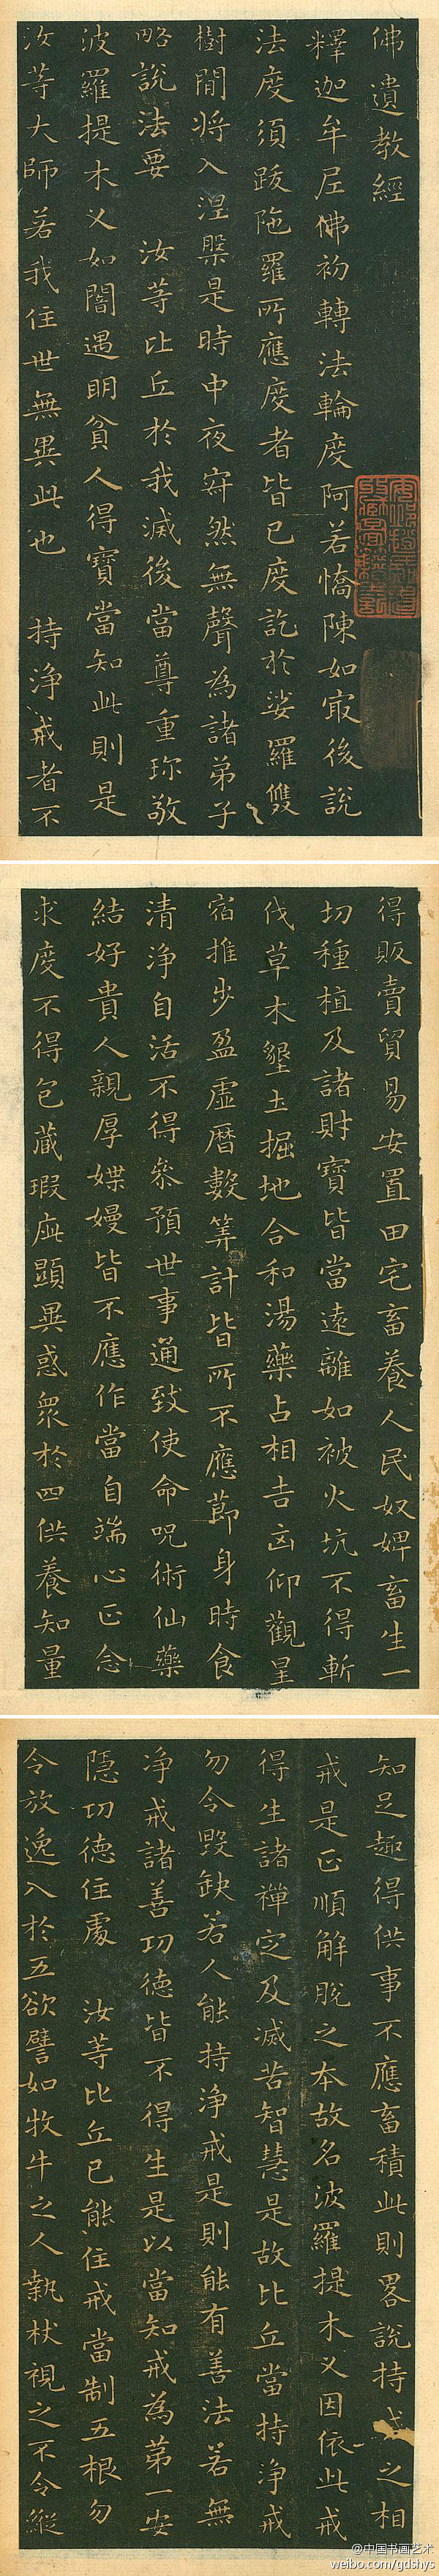 佛遺教經
釋迦牟尼佛初轉法輪度阿若憍陳如㝡後說
法度須跋陁羅所應度者皆已度訖於娑羅雙
樹間將入涅槃是時中夜寂然無聲為諸弟子
略說法要 汝等比丘於我滅後當尊重珎敬
波羅提木叉如闇遇明貧人得寶當知此則是
汝等大師若我住世無異此也 持淨戒者不
得販賣貿易安置田宅畜養人民奴婢畜生一
切種植及諸財寶皆當遠離如被火坑不得斬
伐草木墾土掘地合和湯藥占相吉凶仰觀星
宿推步盈虛曆數筭計皆所不應節身時食
清淨自活不得參預世事通致使命呪術仙藥
結好貴人親厚媟嫚皆不應作當自端心正念
求度不得包藏瑕疵顯異惑眾於四供養知量
知足趣得供事不應畜積此則畧說持戒之相
戒是正順解脫之本故名波羅提木叉因依此戒
得生諸禪定及滅苦智慧是故比丘當持淨戒
勿令毀缺若人能持淨戒是則能有善法若無
淨戒諸善功德皆不得生是以當知戒為第一安
隱功德住處 汝等比丘已能住戒當制五根勿
令放逸入於五欲譬如牧牛之人執杖視之不令縱
@中国书画艺术
weibo.com/gdshys